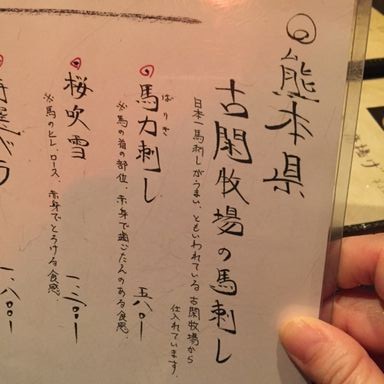 熊本県
古閑牧場の馬刺し
日本一馬刺しがうまい、ともいわれている古閑牧場から
仕入れています。
ばりき
馬力刺し
※馬の首の部位、赤身で歯ごたえのある食感。
五八〇
桜吹雪
※馬のヒレ、ロース、赤身でとろける食感。